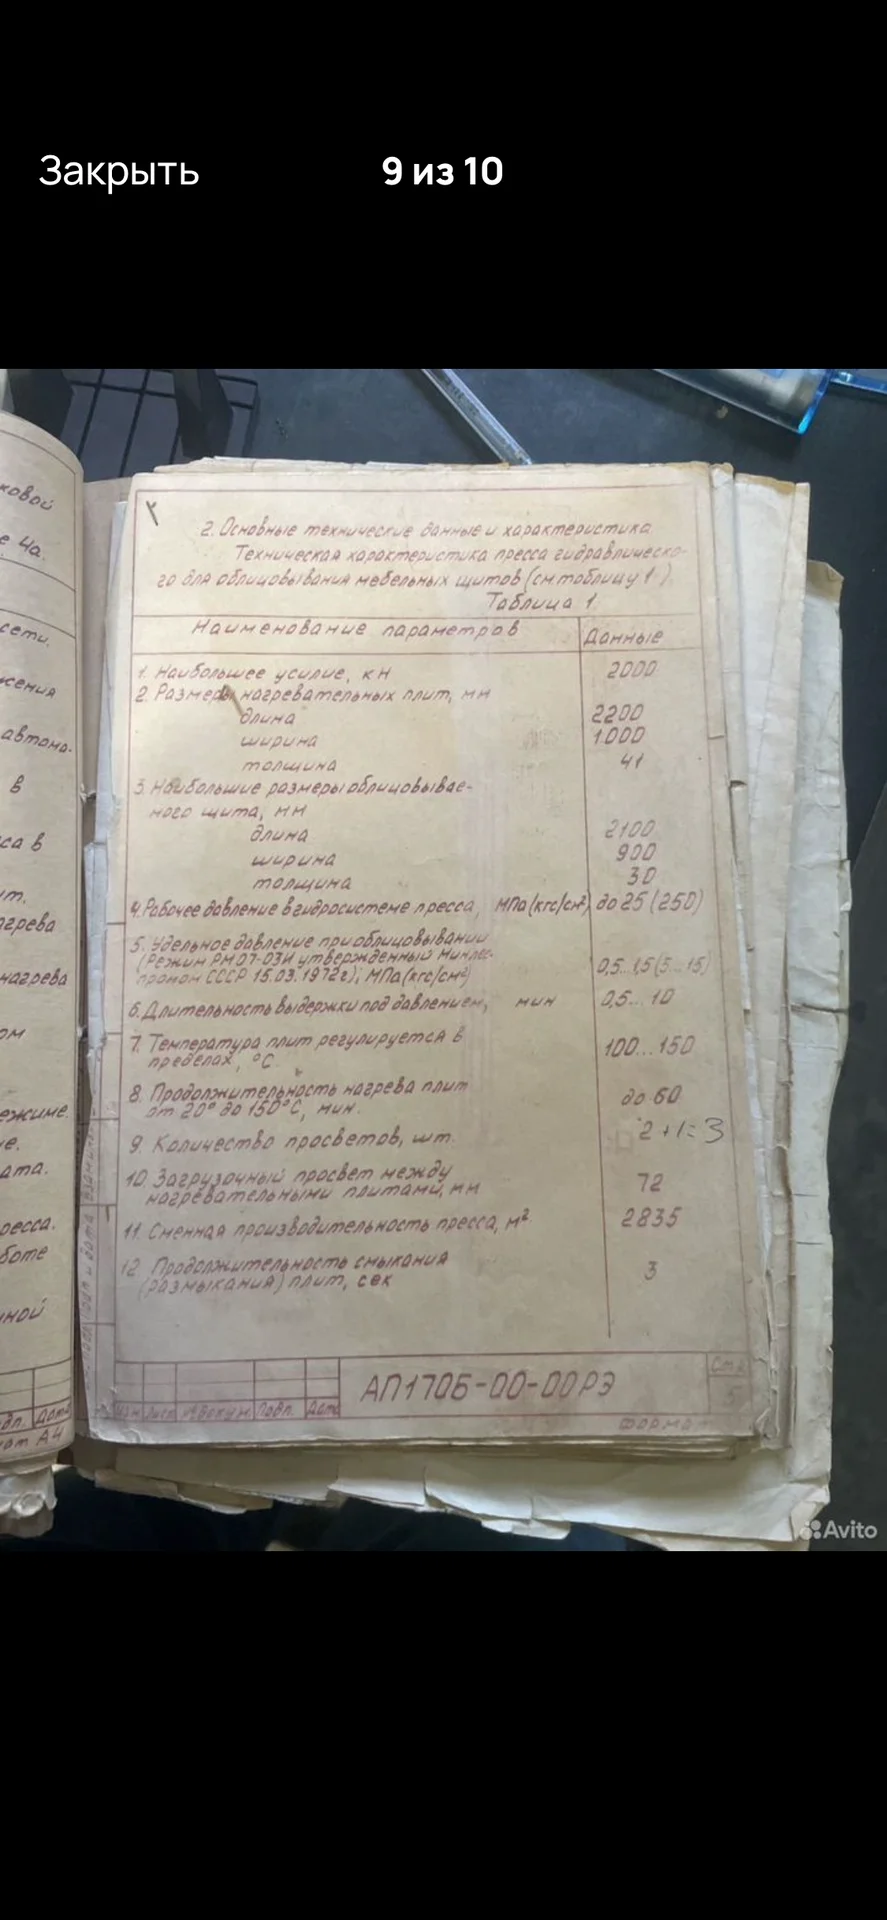 Закрыть
9 из 10
ковой
е 4а.
сети.
жения
автома-
в
са в
шт.
агрева
нагрева
ом
ежиме.
ие.
дата.
ресса.
боте
нной
2. Основные технические данные и характеристика.
Техническая характеристика пресса гидравлическо-
го для облицовывания мебельных щитов (см таблицу 1).
Таблица 1.
Наименование параметров Данные
1. Наибольшее усилие, кН 2000
2. Размеры нагревательных плит, мм
длина 2200
ширина 1000
толщина 41
3. Наибольшие размеры облицовывае-
мого щита, мм
длина 2100
ширина 900
толщина 30
4. Рабочее давление в гидросистеме пресса, МПа (кгс/см²) до 25 (250)
5. Удельное давление при облицовывании
(Режим РМ 07-03И утвержденный Минлес-
промом СССР 15.03.1972г), МПа (кгс/см²) 0,5...1,5 (5...15)
6. Длительность выдержки под давлением, мин 0,5...10
7. Температура плит регулируется в
пределах, °С 100...150
8. Продолжительность нагрева плит
от 20° до 150°С, мин. до 60
9. Количество просветов, шт. 2+1=3
10. Загрузочный просвет между
нагревательными плитами, мм 72
11. Сменная производительность пресса, м² 2835
12. Продолжительность смыкания
(размыкания) плит, сек 3
АП1706-00-00РЭ
Изм Лист № докум. Подп. Дата
Формат
Avito